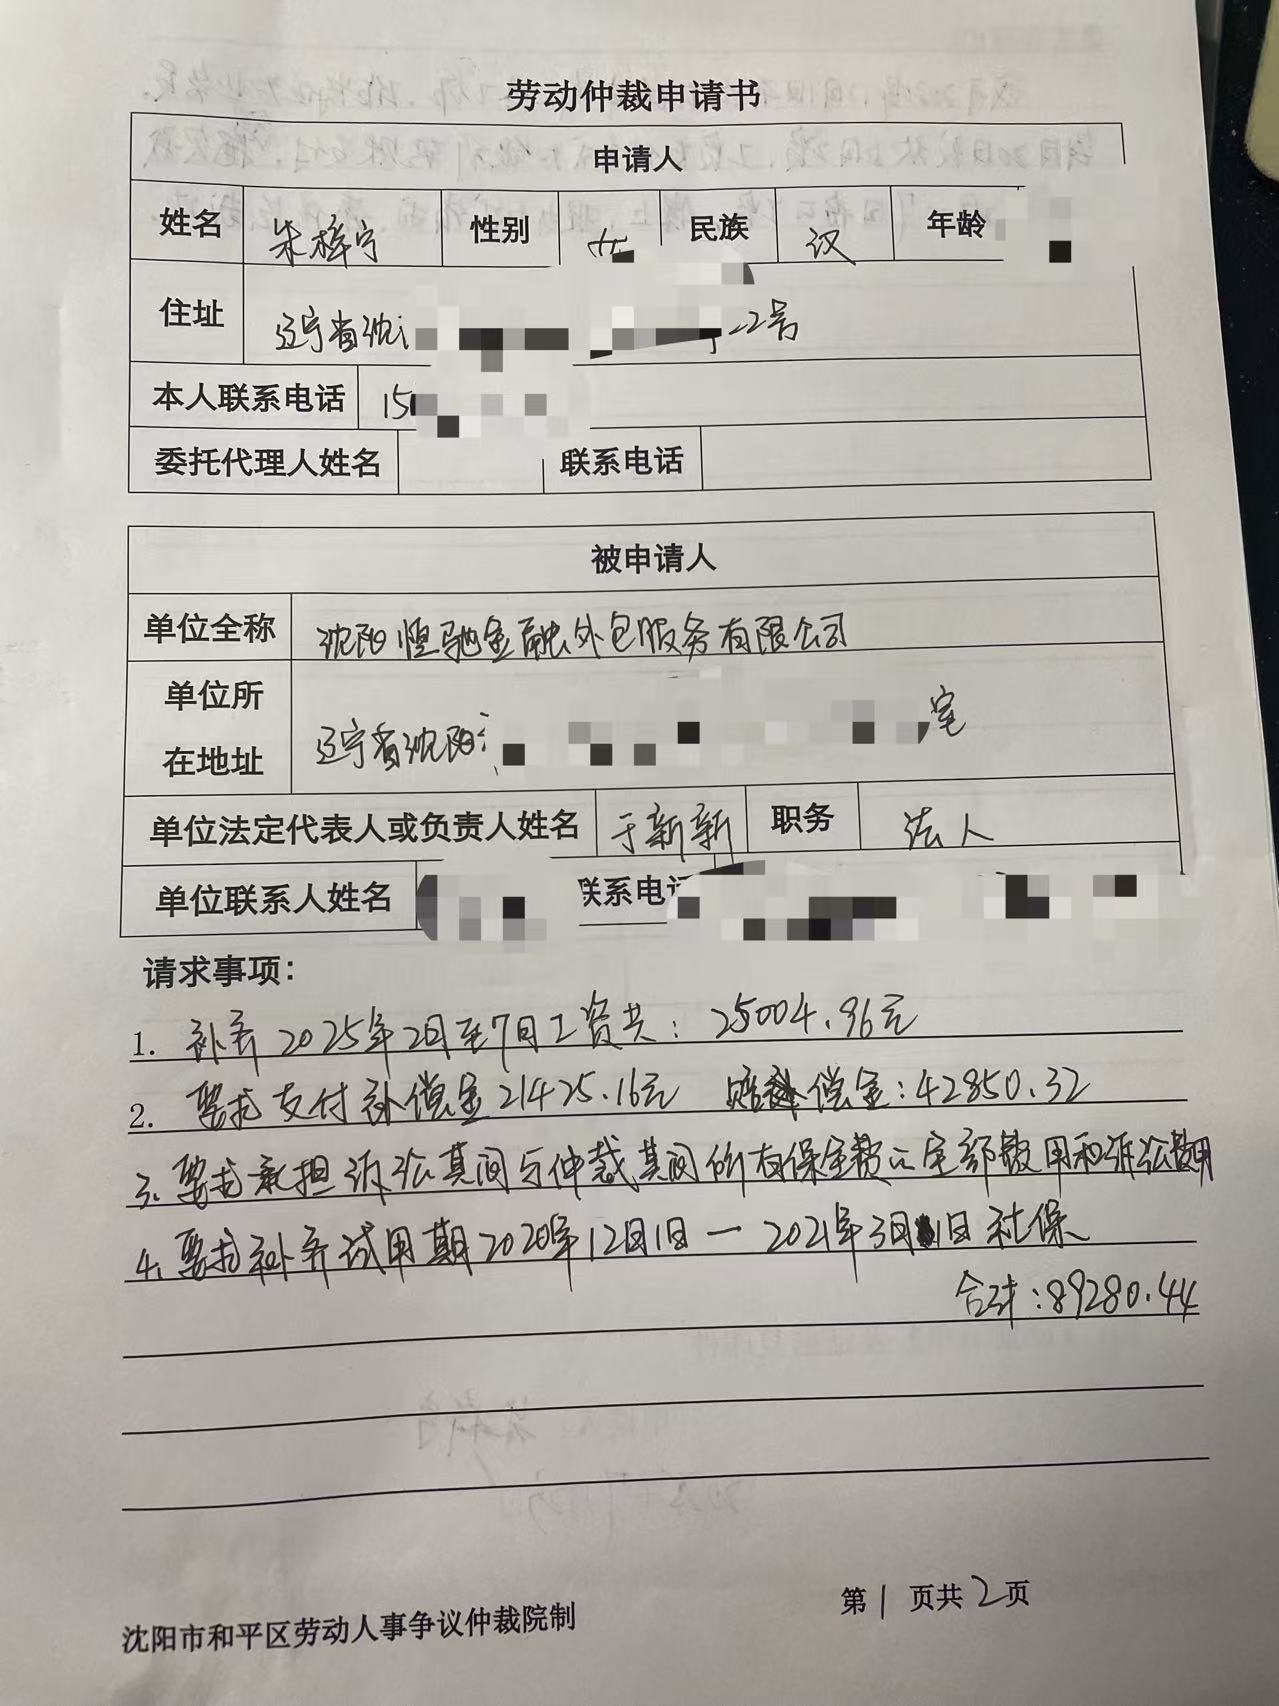 劳动仲裁申请书
申请人
姓名 朱梓宁 性别 女 民族 汉 年龄
住址 辽宁省沈 22号
本人联系电话 15
委托代理人姓名 联系电话
被申请人
单位全称 沈阳恒驰金融外包服务有限公司
单位所
在地址 辽宁省沈阳 室
单位法定代表人或负责人姓名 于新新 职务 法人
单位联系人姓名 联系电话
请求事项：
1. 补齐2025年2月至7月工资共：25004.96元
2. 要求支付补偿金21425.16元 赔偿金：42850.32
3. 要求承担诉讼其间与仲裁其间所有保全费 全部费用和诉讼费用
4. 要求补齐试用期2020年12月1日一2021年3月1日社保
合计：89280.44
第1页共2页
沈阳市和平区劳动人事争议仲裁院制